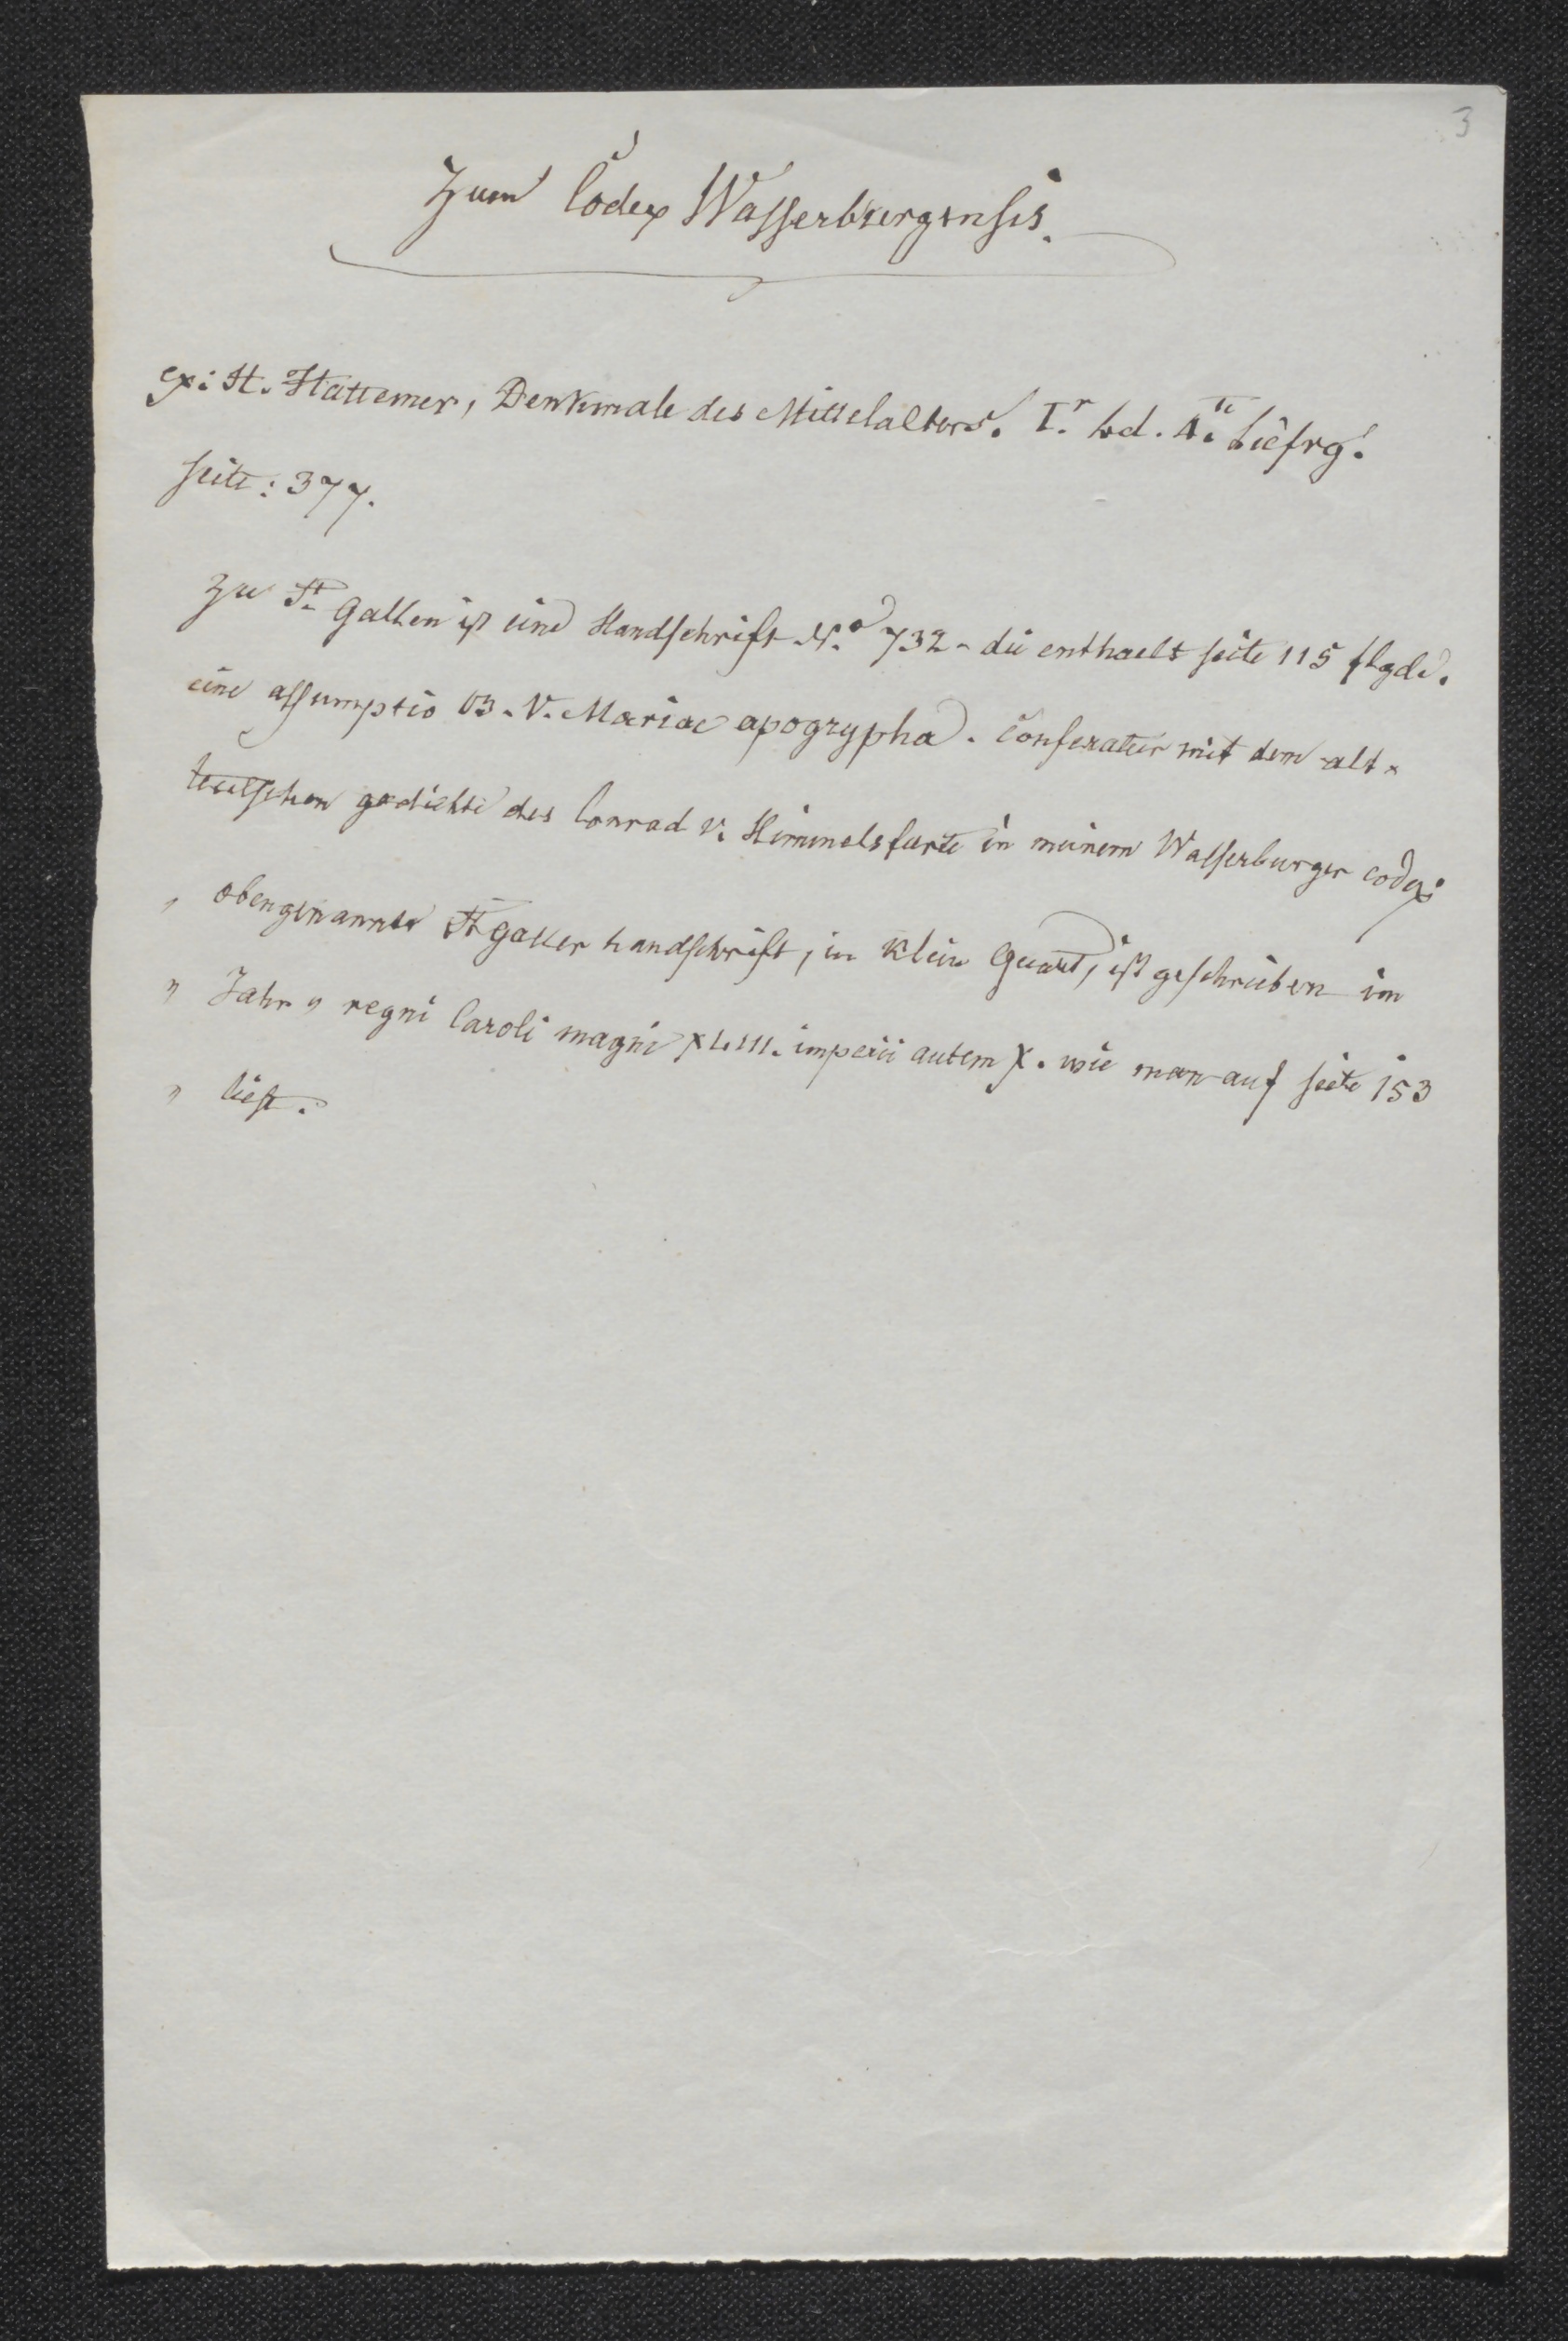 3
Zum Codex Wasserburgensis.
ex: H. Hattemer, Denkmale des Mittelalters. I.r bd. 4.te Liefrg.
seite: 377.
Zu St. Gallen ist eine Handschrift N.o 732 - die enthaelt seite 115 flgde.
eine assumptio B. V. Mariae apogrypha. Conferatur mit dem alt-
teutschen gedichte des Conrad v. Himmelsfurte in meinem Wasserburger codex;
„ obengenannte St galler handschrift, in klein Quart, ist geschrieben im
„ Jahr „ regni Caroli magni XLIII. imperii autem X. wie man auf seite 153
„ liest.